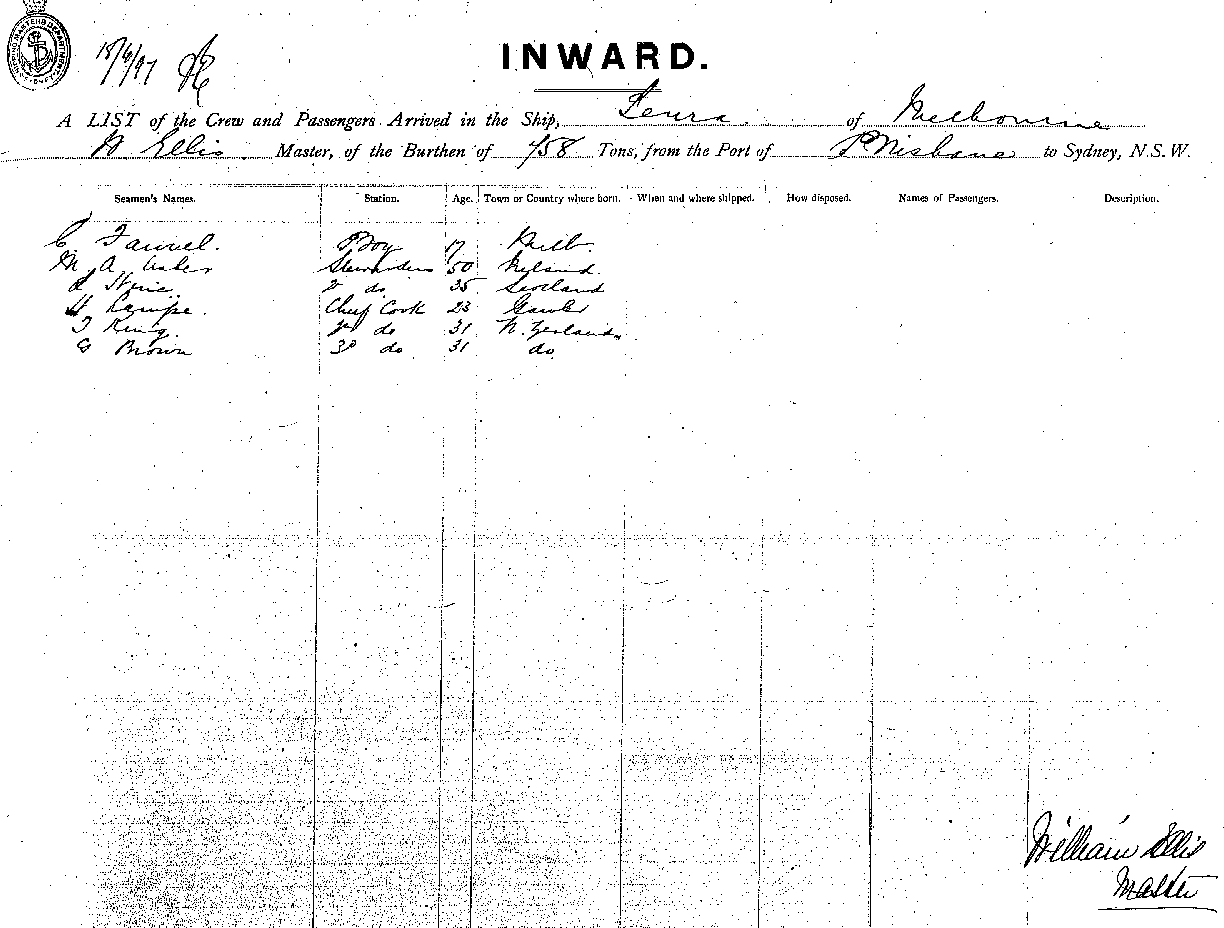 18/6/97
INWARD.
A LIST of the Crew and Passengers Arrived in the Ship, Leura of Melbourne
W Ellis Master, of the Burthen of 758 Tons, from the Port of Brisbane to Sydney, N.S.W.
Seamen's Names. Station. Age. Town or Country where born. When and where shipped. How disposed. Names of Passengers. Description.
C. Boy 17 Melb.
M A Usher Stewardess 50 Ireland
2 do 35 Scotland
H Lampe. Chief Cook 23 Gawler
J King. 2d do 31 N. Zealand
G Brown 3d do 31 do
William Ellis
Master